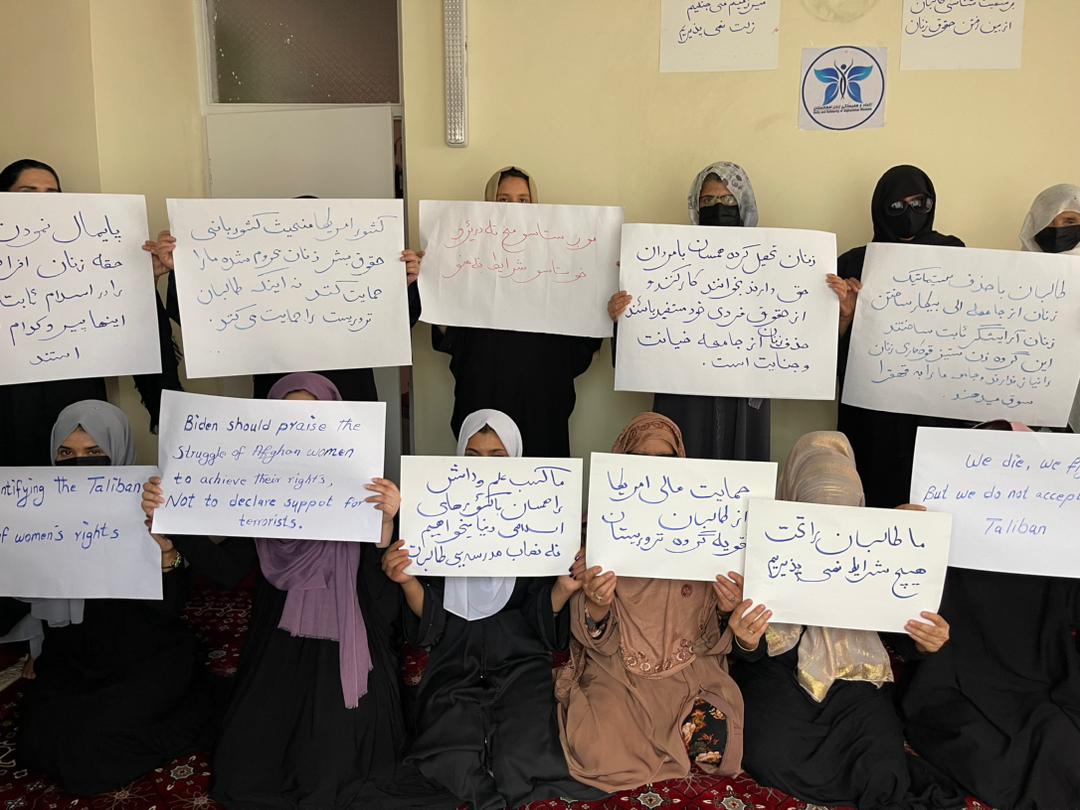 زلت نمی پذیریم
برسمیت شناسی طالبان
از بین رفتن حقوق زنان
Unity and Solidarity of Afghanistan Women
پایمال نمودن
حقه زنان افرا
را در اسلام ثابت
اینها پیر و کوام
استند
کشور امریکا منحیث کشور بانی
حقوق بشر زنان محروم شده ما را
حمایت کند نه اینکه طالبان
تروریست را حمایت می کند.
موږ ستاسو هیڅ نه
ستاسو شرایط نه منو
زنان تحصیل کرده همسان با مردان
حق دارند بتوانند کار کنند و
از حقوق فردی خود مستفید باشند
حذف زنان از جامعه خیانت
و جنایت است.
طالبان با حذف سیستماتیک
زنان از جامعه الی بیکار ساختن
زنان آرایشگر ثابت ساختند
این گروه زن ستیز زنان
را ندارند و جامعه ما را به قهقرا
سوق میدهند.
ntifying the Taliban
of women's rights
Biden should praise the
struggle of Afghan women
to achieve their rights,
Not to declare suppot for
terrorists.
ما کسب علم و دانش
را همسان با کشورهای
اسلامی دنیا میخواهیم
نه نصاب مدرسه یی طالبان
حمایت مالی امریکا
از طالبان
تقویه گروه تروریستان
ما طالبان را تحت
هیچ شرایط نمی پذیریم
We die, we f
But we do not accept
Taliban